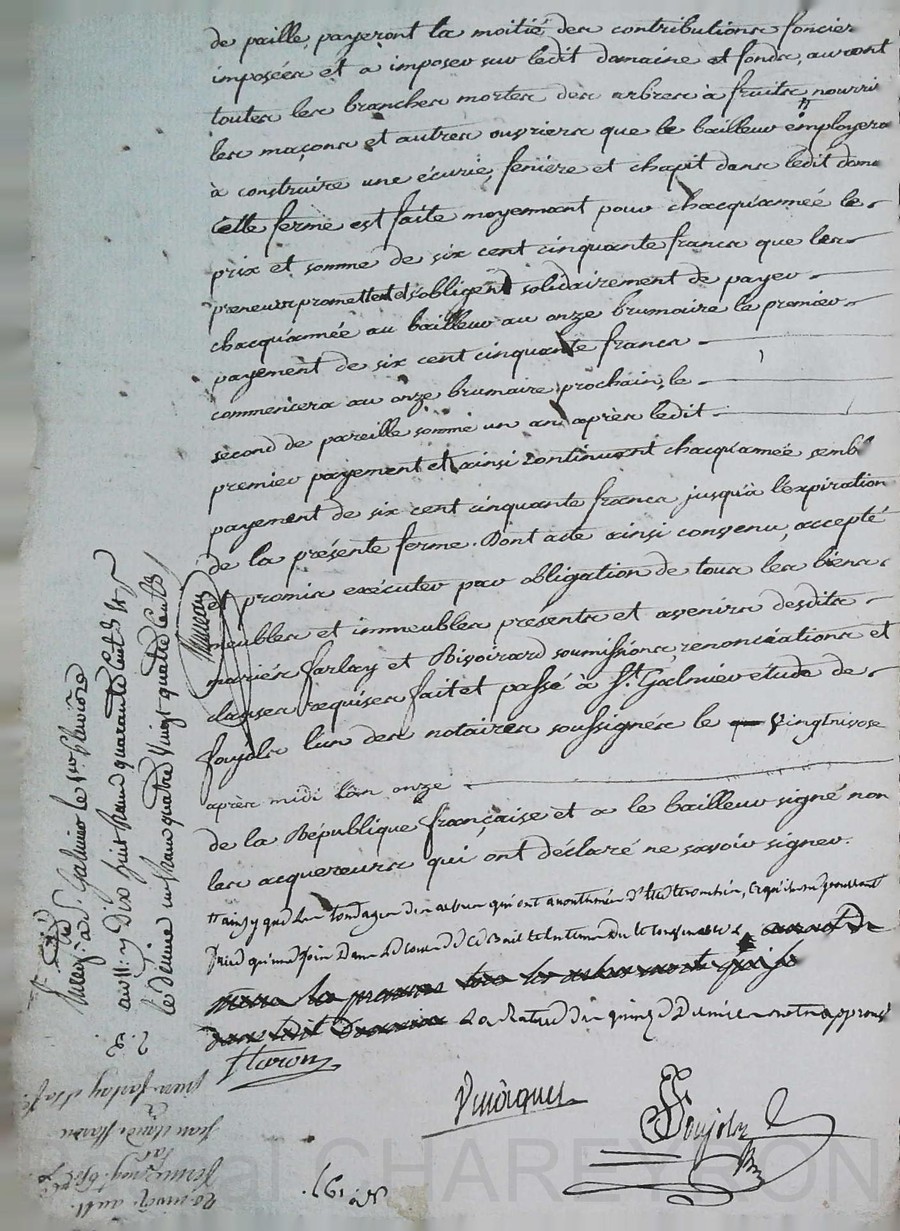 de paille, payeront la moitié des contributions foncier
imposées et a imposer sur ledit domaine et fonds, auront
toutes les branches mortes des arbres à fruits, nourrir
les maçons et autres ouvriers que le bailleur employera
à construire une écurie, fenière et chapit dans ledit dom
Cette ferme est faite moyennant pour chacq'année le
prix et somme de six cent cinquante francs que les
preneurs promettent et s'obligent solidairement de payer
chacq'année au bailleur au onze brumaire le premier
payement de six cent cinquante francs
commencera au onze brumaire prochain, le
second de pareille somme un an après ledit
premier payement et ainsi continuent chacq'année sembl
payement de six cent cinquante francs jusqu'à l'expiration
de la présente ferme. Dont acte ainsi convenu, accepté
et promis exécuter par obligation de tous les biens
meubles et immeubles presents et avenirs desdits
mariés farlay et Bivoirard soumissions, renonciations et
clauses requises fait et passé à St. Galmier étude de
foujols l'un des notaires soussignés le vingt nivose
après midi l'an onze
de la République française et a le bailleur signé non
les acquereurs qui ont déclaré ne savoir signer.
ainsy que les tondages des arbres qui ont accoutumé d'être
qu'une fois dans le cours de ce Bail
La rature de quinze
Flaron
Foujols
St. Galmier le 1er Pluviôse
an 11
dix huit francs quarante cent
le dixième un franc quatre vingt quatre cent
farlay
Jean Claude Flaron
par
an 11.
161.
CHAREYRON